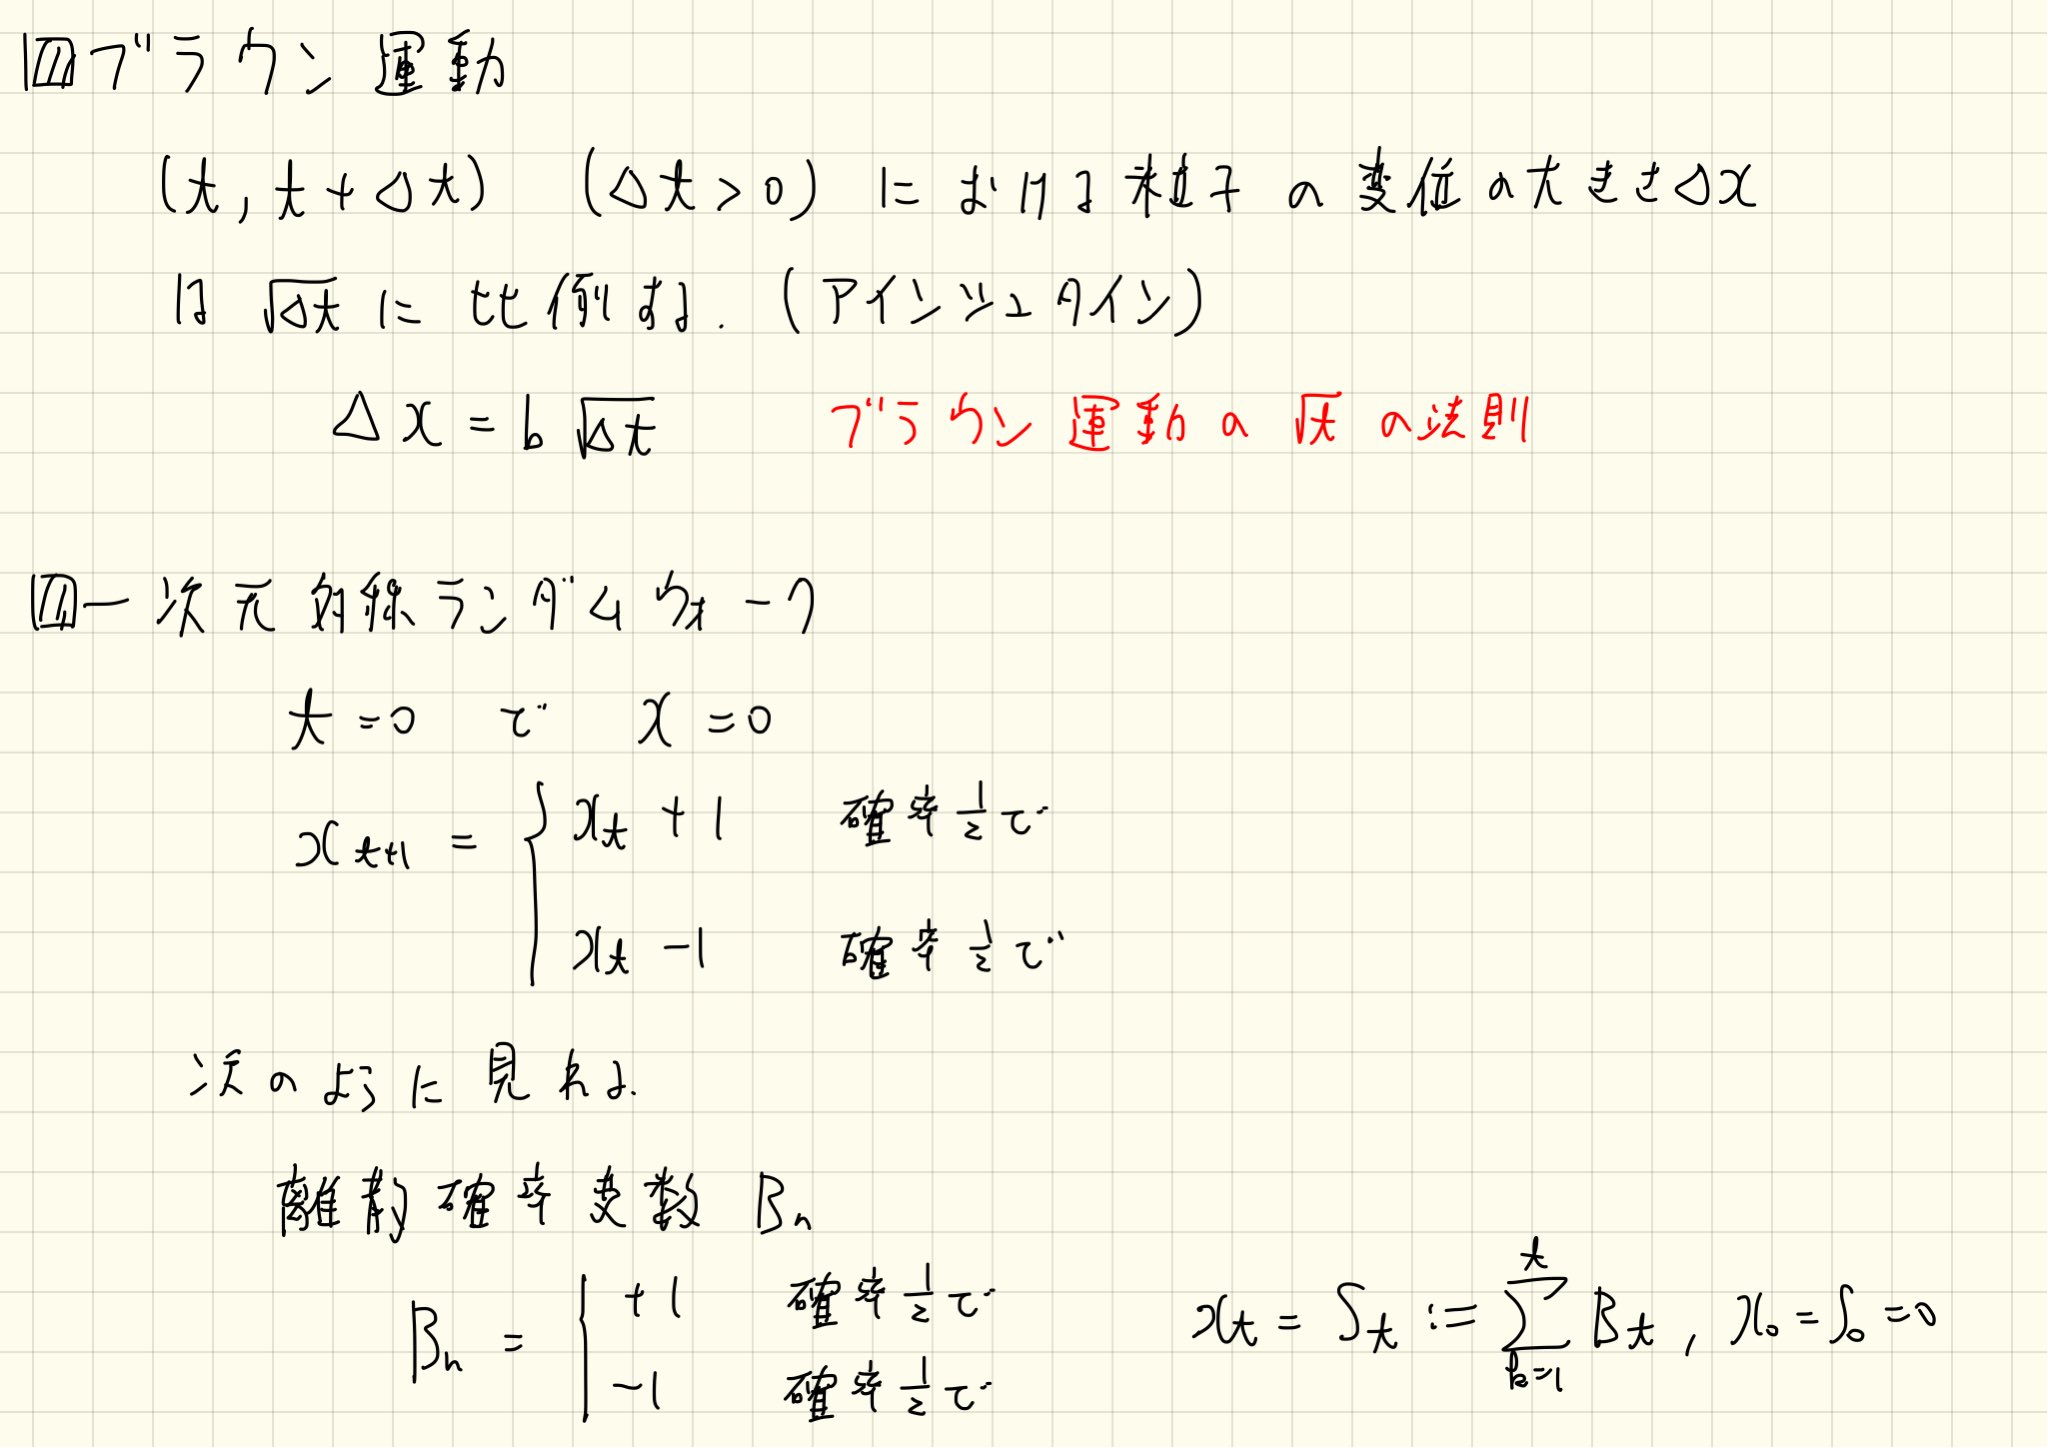 ブラウン運動
(t, t+Δt) (Δt>0) における粒子の変位の大きさΔx
は √Δt に比例する. (アインシュタイン)
Δx = b√Δt ブラウン運動の√tの法則
一次元対称ランダムウォーク
t=0 で x=0
x_{t+1} = { x_t + 1 確率1/2で
x_t - 1 確率1/2で
次のように見れる.
離散確率変数 B_n
B_n = { +1 確率1/2で
-1 確率1/2で
x_t = S_t := Σ_{k=1}^{t} B_t , x_0 = S_0 = 0